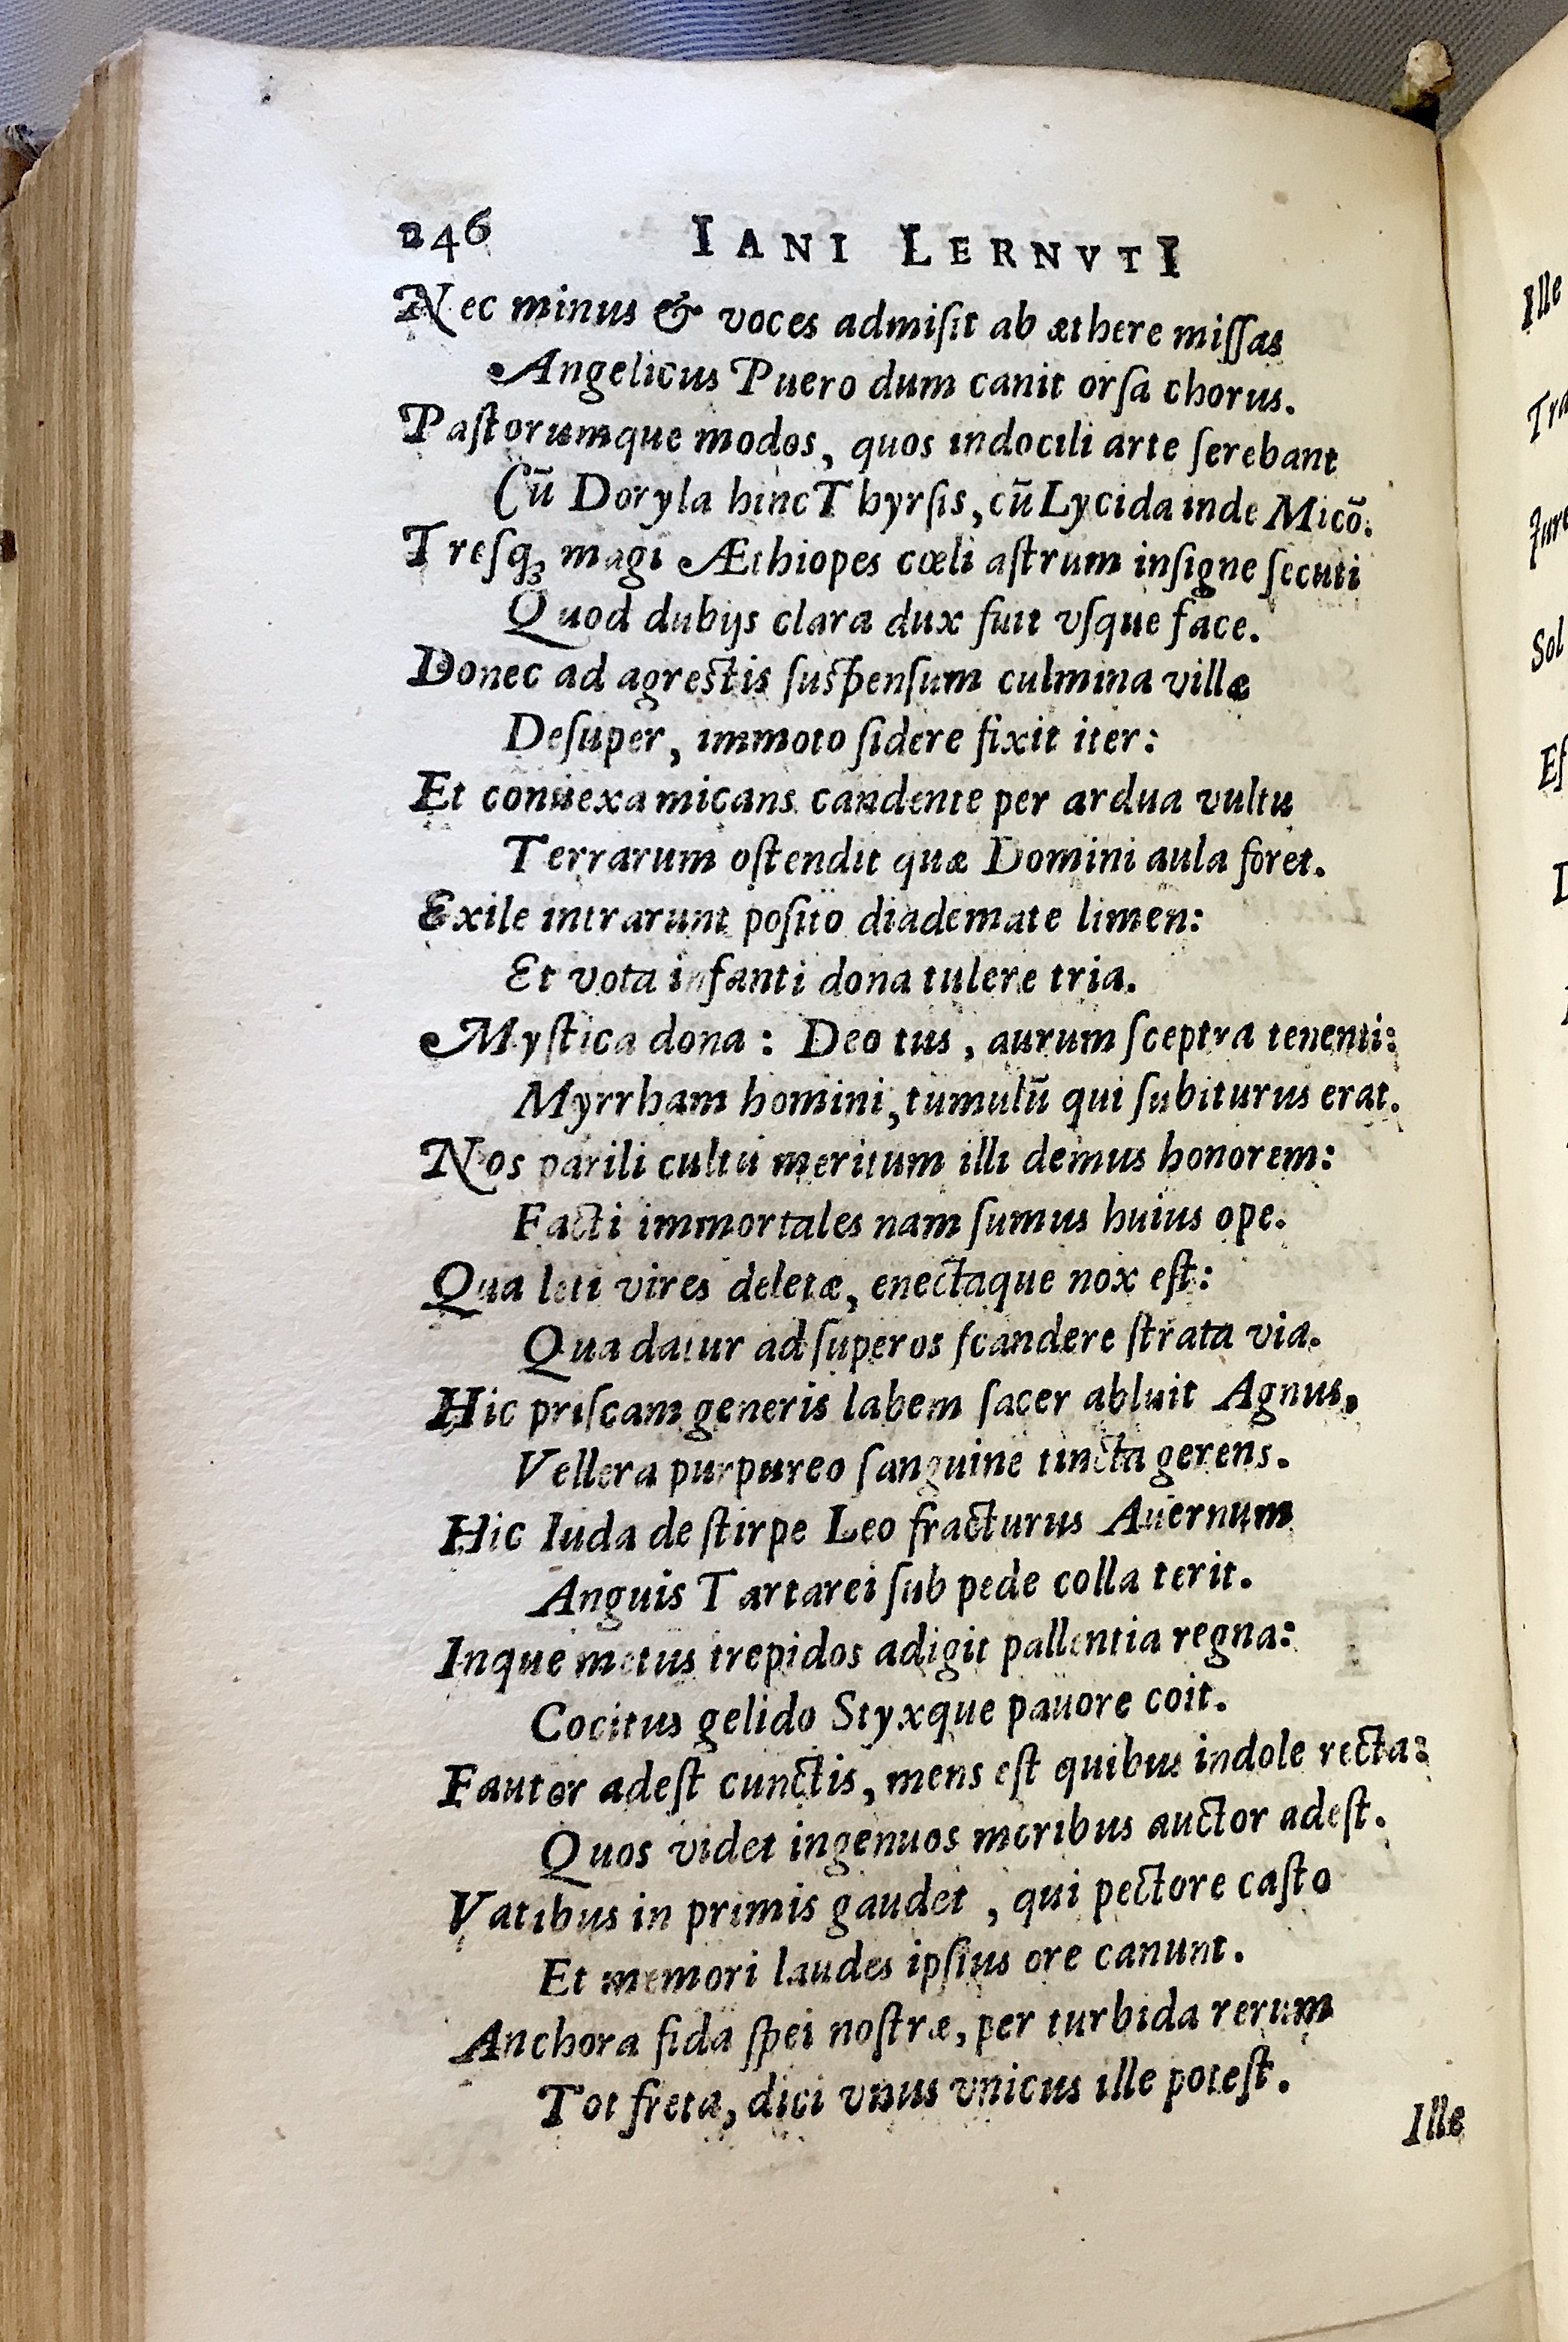 246 IANI LERNVTI
Nec minus & voces admiſit ab æthere miſſas
Angelicus Puero dum canit orſa chorus.
Paſtorumque modos, quos indocili arte ſerebant
Cū Doryla hinc Thyrſis, cū Lycida inde Micō.
Treſq; magi Æthiopes cœli aſtrum inſigne ſecuti
Quod dubijs clara dux fuit vſque face.
Donec ad agreſtis ſuſpenſum culmina villæ
Deſuper, immoto ſidere fixit iter:
Et conuexa micans candente per ardua vultu
Terrarum oſtendit quæ Domini aula foret.
Exile intrarunt poſito diademate limen:
Et vota infanti dona tulere tria.
Myſtica dona: Deo tus, aurum ſceptra tenenti:
Myrrham homini, tumulū qui ſubiturus erat.
Nos parili cultu meritum illi demus honorem:
Facti immortales nam ſumus huius ope.
Qua leti vires deletæ, enectaque nox eſt:
Qua datur ad ſuperos ſcandere ſtrata via.
Hic priſcam generis labem ſacer abluit Agnus,
Vellera purpureo ſanguine tincta gerens.
Hic Iuda de ſtirpe Leo fracturus Auernum
Anguis Tartarei ſub pede colla terit.
Inque metus trepidos adigit pallentia regna:
Cocitus gelido Styxque pauore coit.
Fautor adeſt cunctis, mens eſt quibus indole recta:
Quos videt ingenuos moribus auctor adeſt.
Vatibus in primis gaudet, qui pectore caſto
Et memori laudes ipſius ore canunt.
Anchora fida ſpei noſtræ, per turbida rerum
Tot freta, dici vnus vnicus ille poteſt.
Ille
Ille
Sol